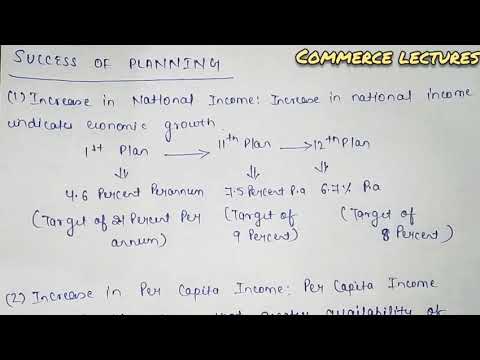 COMMERCE LECTURES
SUCCESS OF PLANNING
(1) Increase in National Income: Increase in national income
indicates economic growth.
1st Plan → 11th Plan → 12th Plan
⇓ ⇓ ⇓
4.6 Percent Per annum 7.5 Percent P.a 6.7% P.a
(Target of Percent Per (Target of (Target of
annum) 9 Percent) 8 Percent)
(2) Increase in Per Capita Income: Per Capita Income
that greater availability of